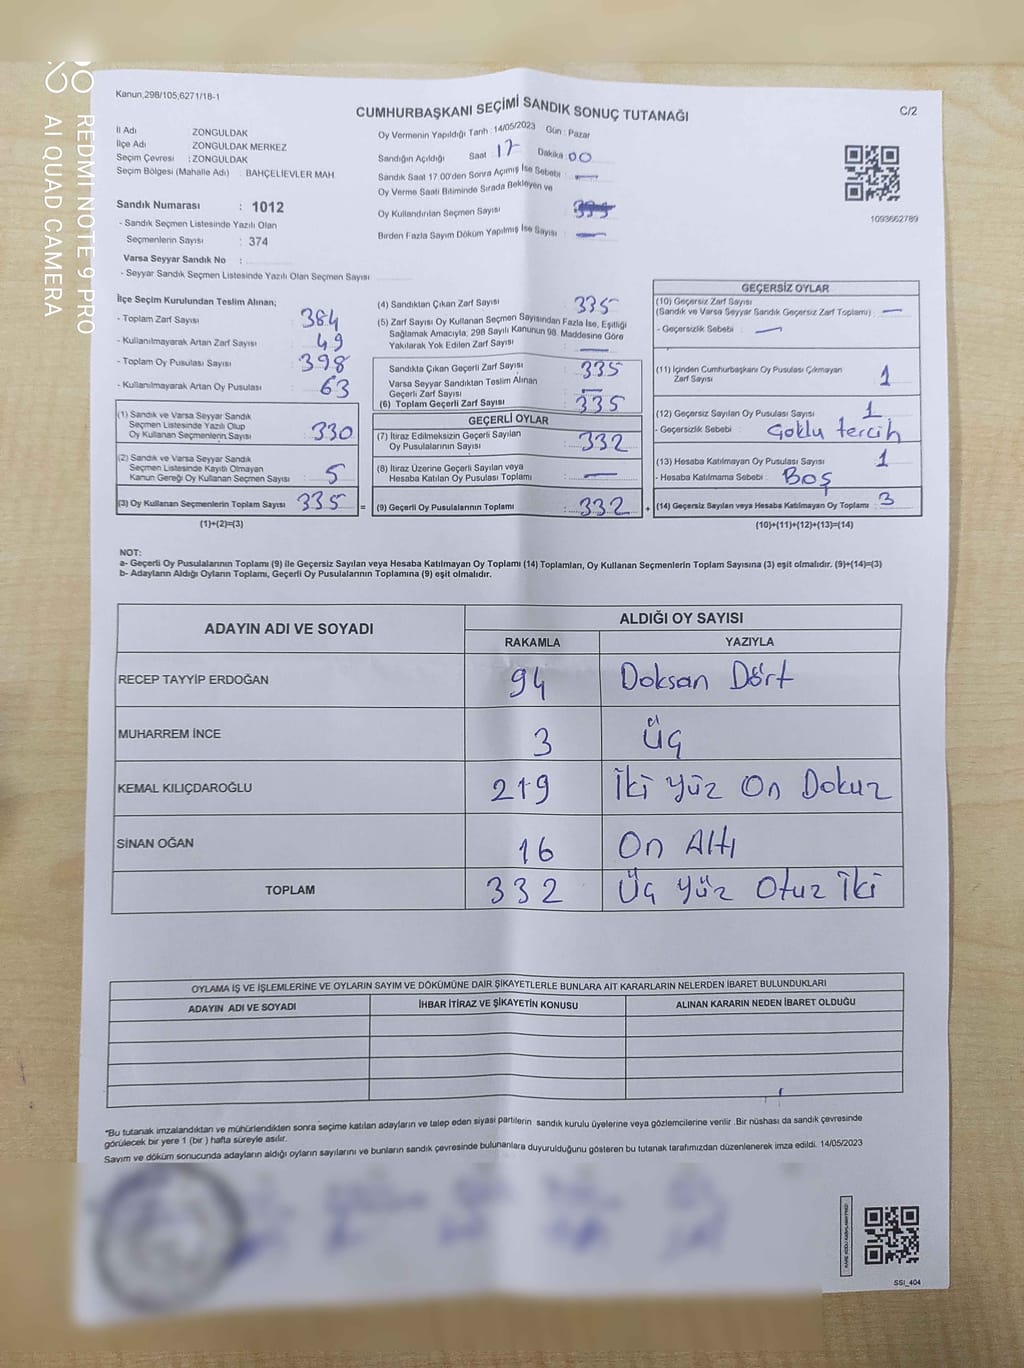 REDMI NOTE 9 PRO
AI QUAD CAMERA
Kanun,298/105,6271/18-1
CUMHURBAŞKANI SEÇİMİ SANDIK SONUÇ TUTANAĞI
C/2
İl Adı ZONGULDAK
İlçe Adı ZONGULDAK MERKEZ
Seçim Çevresi : ZONGULDAK
Seçim Bölgesi (Mahalle Adı) : BAHÇELİEVLER MAH.
Sandık Numarası : 1012
- Sandık Seçmen Listesinde Yazılı Olan
Seçmenlerin Sayısı : 374
Varsa Seyyar Sandık No :
- Seyyar Sandık Seçmen Listesinde Yazılı Olan Seçmen Sayısı
Oy Vermenin Yapıldığı Tarih : 14/05/2023 Gün : Pazar
Sandığın Açıldığı Saat 17 Dakika 00
Sandık Saat 17.00'den Sonra Açımış İse Sebebi : —
Oy Verme Saati Bitiminde Sırada Bekleyen ve
Oy Kullandırılan Seçmen Sayısı :
Birden Fazla Sayım Döküm Yapılmış İse Sayısı : —
1093662789
İlçe Seçim Kurulundan Teslim Alınan;
- Toplam Zarf Sayısı : 384
- Kullanılmayarak Artan Zarf Sayısı : 49
- Toplam Oy Pusulası Sayısı : 398
- Kullanılmayarak Artan Oy Pusulası : 63
(1) Sandık ve Varsa Seyyar Sandık
Seçmen Listesinde Yazılı Olup
Oy Kullanan Seçmenlerin Sayısı : 330
(2) Sandık ve Varsa Seyyar Sandık
Seçmen Listesinde Kayıtlı Olmayan
Kanun Gereği Oy Kullanan Seçmen Sayısı : 5
(3) Oy Kullanan Seçmenlerin Toplam Sayısı : 335 =
(1)+(2)=(3)
(4) Sandıktan Çıkan Zarf Sayısı : 335
(5) Zarf Sayısı Oy Kullanan Seçmen Sayısından Fazla İse, Eşitliği
Sağlamak Amacıyla, 298 Sayılı Kanunun 98. Maddesine Göre
Yakılarak Yok Edilen Zarf Sayısı : —
Sandıkta Çıkan Geçerli Zarf Sayısı : 335
Varsa Seyyar Sandıktan Teslim Alınan
Geçerli Zarf Sayısı : —
(6) Toplam Geçerli Zarf Sayısı : 335
GEÇERLİ OYLAR
(7) İtiraz Edilmeksizin Geçerli Sayılan
Oy Pusulalarının Sayısı : 332
(8) İtiraz Üzerine Geçerli Sayılan veya
Hesaba Katılan Oy Pusulası Toplamı : —
(9) Geçerli Oy Pusulalarının Toplamı : 332 +
GEÇERSİZ OYLAR
(10) Geçersiz Zarf Sayısı
(Sandık ve Varsa Seyyar Sandık Geçersiz Zarf Toplamı) : —
- Geçersizlik Sebebi : —
(11) İçinden Cumhurbaşkanı Oy Pusulası Çıkmayan
Zarf Sayısı : 1
(12) Geçersiz Sayılan Oy Pusulası Sayısı : 1
- Geçersizlik Sebebi : Çoklu tercih
(13) Hesaba Katılmayan Oy Pusulası Sayısı : 1
- Hesaba Katılmama Sebebi : Boş
(14) Geçersiz Sayılan veya Hesaba Katılmayan Oy Toplamı : 3
(10)+(11)+(12)+(13)=(14)
NOT:
a- Geçerli Oy Pusulalarının Toplamı (9) ile Geçersiz Sayılan veya Hesaba Katılmayan Oy Toplamı (14) Toplamları, Oy Kullanan Seçmenlerin Toplam Sayısına (3) eşit olmalıdır. (9)+(14)=(3)
b- Adayların Aldığı Oyların Toplamı, Geçerli Oy Pusulalarının Toplamına (9) eşit olmalıdır.
ADAYIN ADI VE SOYADI ALDIĞI OY SAYISI
RAKAMLA YAZIYLA
RECEP TAYYİP ERDOĞAN 94 Doksan Dört
MUHARREM İNCE 3 Üç
KEMAL KILIÇDAROĞLU 219 İki Yüz On Dokuz
SİNAN OĞAN 16 On Altı
TOPLAM 332 Üç Yüz Otuz İki
OYLAMA İŞ VE İŞLEMLERİNE VE OYLARIN SAYIM VE DÖKÜMÜNE DAİR ŞİKAYETLERLE BUNLARA AİT KARARLARIN NELERDEN İBARET BULUNDUKLARI
ADAYIN ADI VE SOYADI İHBAR İTİRAZ VE ŞİKAYETİN KONUSU ALINAN KARARIN NEDEN İBARET OLDUĞU
*Bu tutanak imzalandıktan ve mühürlendikten sonra seçime katılan adayların ve talep eden siyasi partilerin sandık kurulu üyelerine veya gözlemcilerine verilir .Bir nüshası da sandık çevresinde
görülecek bir yere 1 (bir ) hafta süreyle asılır.
Sayım ve döküm sonucunda adayların aldığı oyların sayılarını ve bunların sandık çevresinde bulunanlara duyurulduğunu gösteren bu tutanak tarafımızdan düzenlenerek imza edildi. 14/05/2023
SSI_404